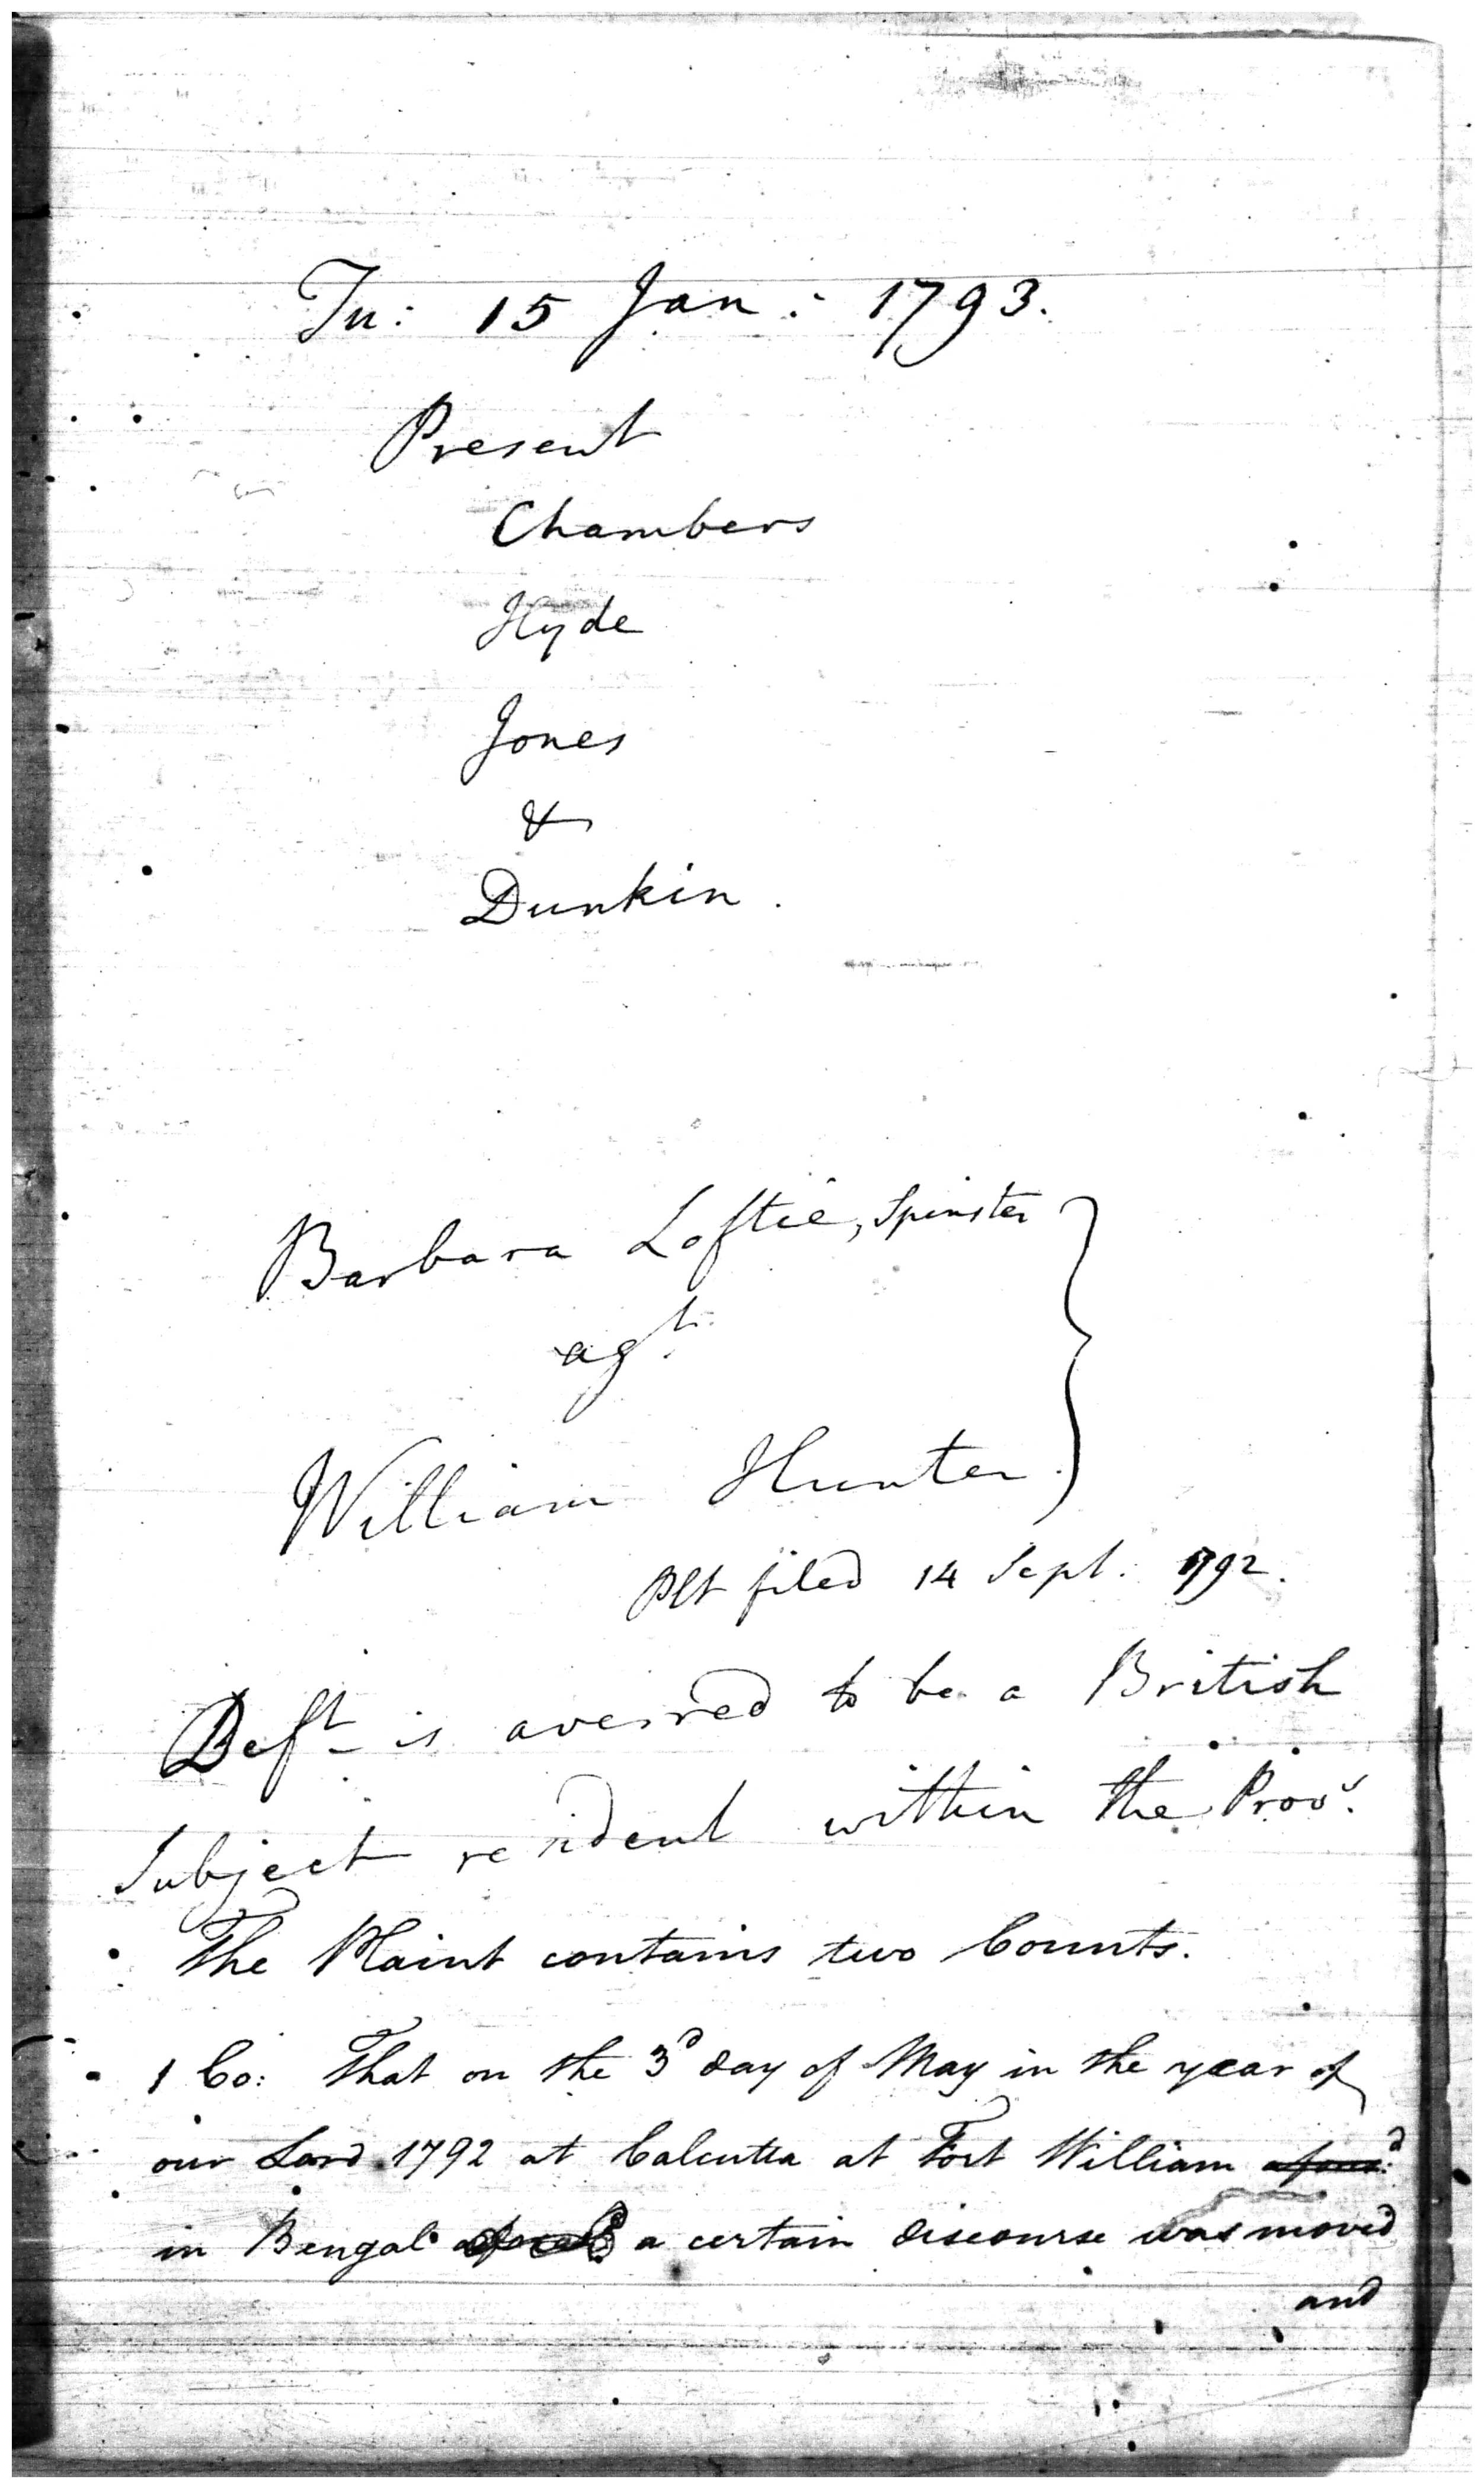 Tu: 15 Jan: 1793.
Present
Chambers
Hyde
Jones
&
Dunkin.
Barbara Loftie, Spinster
agt.
William Hunter.
Plt filed 14 Sept. 1792.
Deft is averred to be a British
Subject resident within the Provs.
The Plaint contains two Counts.
1 Co: That on the 3d day of May in the year of
our Lord 1792 at Calcutta at Fort William
in Bengal a certain discourse was moved
and